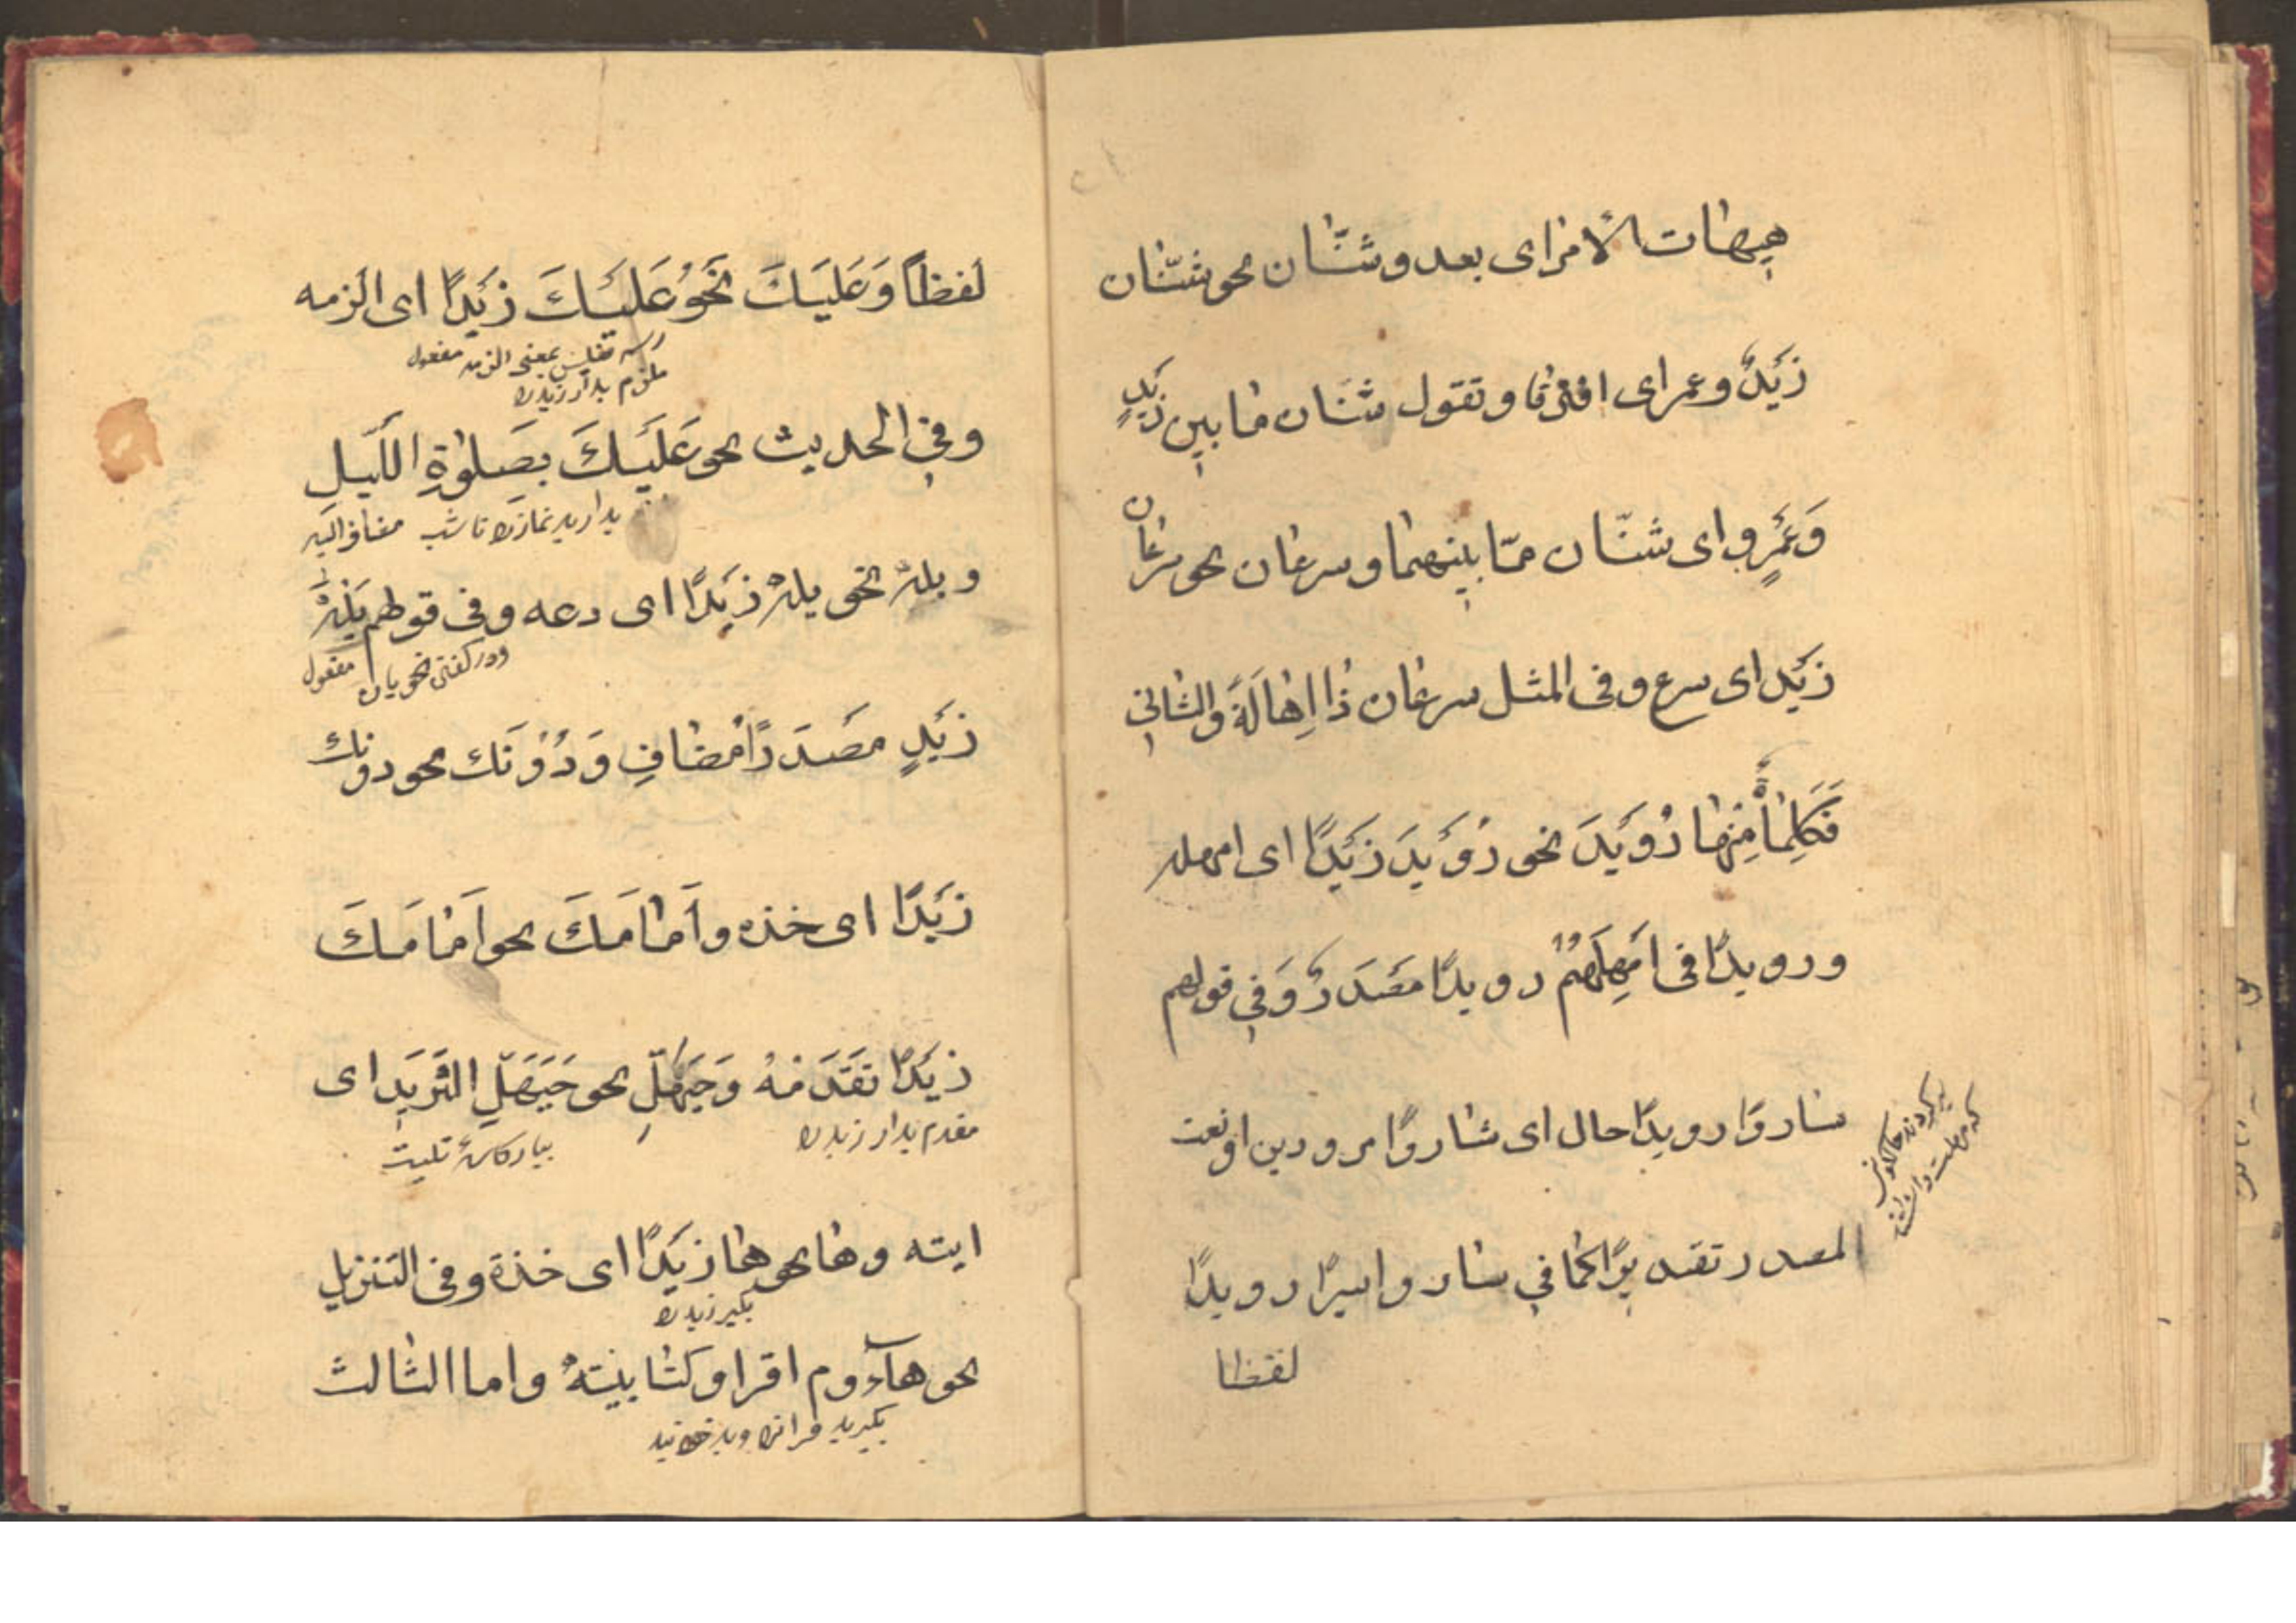 هیهات الأمر ای بعد وشتّان نحو شتّان
زَیْدٌ وعمر ای افترقا وتقول شتّان ما بین زَیْدٍ
وَعَمْرٍو ای شتّان ممّا بینهما وسرعان نحو سرعان
زَیْد ای سرع وفی المثل سرعان ذا اِهالَةً والثانی
فَكَلِمَاتٌ مِنْها رُوَیْدَ نحو رُوَیْدَ زَیْدًا ای امهله
ورویدًا فی امْهِلْهُمْ رویدًا مَصْدَرٌ وَفِی قولهم
ساروا رویدًا حال ای ساروا مرودین او نعت
المصدر تقدیرًا كما فی ساروا سیرًا رویدًا
لفظا
لفظاً وَعَلَیْكَ نَحْوُ عَلَیْكَ زَیْدًا ای الزمه
بمعنی الزمه مفعول
ملزم بدار زیدرا
وفِی الحدیث نحو عَلَیْكَ بِصَلوٰةِ اللَّیْلِ
بدارید نمازرا تا شب مضاف الیه
وبله نحو بله زَیْدًا ای دعه وفی قولهم بَلْهَ
ودر كفتن نحویان مفعول
زَیْدٍ مَصْدَرًا مُضَافٍ وَدُوْنَك نحو دونك
زَیْدًا ای خذه وأَمَامَكَ نحو اَمَامَكَ
زَیْدًا تَقَدَمْهُ وَحَیَّهَلْ نحو حَیَّهَلِ الثَّرِیَدِ ای
مقدم بدار زیدرا
بیار كاسهٔ تلیت
ایته وها نحو ها زَیْدًا ای خذة وفی التنزیل
بگیر زیدرا
نحو هآؤم اقراو كتابیَتهُ واما الثالث
بگیرید قرانرا وبد خوانید